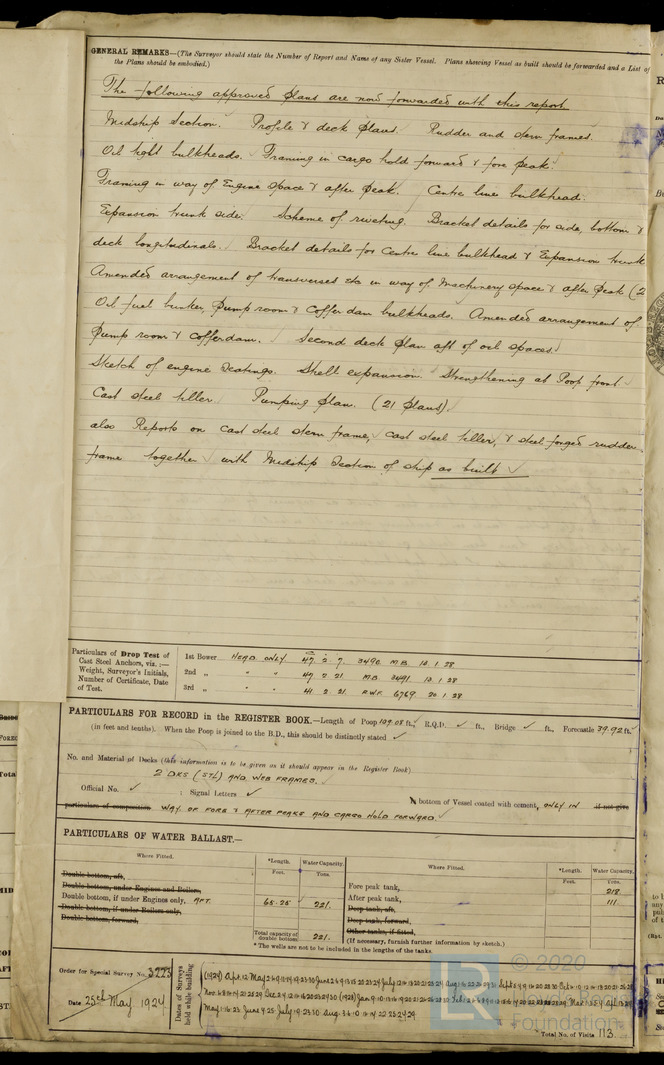 GENERAL REMARKS—(The Surveyor should state the Number of Report and Name of any Sister Vessel. Plans showing Vessel as built should be forwarded and a List of
the Plans should be embodied.)
The following approved plans are now forwarded with this report
Midship Section. Profile & deck plans. Rudder and stern frames.
Oil tight bulkheads. Framing in cargo hold forward & fore peak.
Framing in way of Engine space & after peak. Centre line bulkhead.
Expansion trunk side. Scheme of riveting. Bracket details for side, bottom &
deck longitudinals. Bracket details for Centre line bulkhead & Expansion trunk
Amended arrangement of transverses &c in way of Machinery space & after peak (2
Oil fuel bunker, pump room & Cofferdam bulkheads. Amended arrangement of
Pump room & cofferdam. Second deck plan aft of oil spaces.
Sketch of engine seatings. Shell expansion. Strengthening at Poop front.
Cast steel tiller. Pumping plan. (21 plans).
also Reports on cast steel stern frame, cast steel tiller, & steel forged rudder
frame together with Midship Section of ship as built
Particulars of Drop Test of
Cast Steel Anchors, viz. :—
Weight, Surveyor's Initials,
Number of Certificate, Date
of Test.
1st Bower HEAD ONLY 47. 2. 7. 3490 M.B. 10.1.28
2nd „ " " 47 2 21. M.B. 3491 10.1.28
3rd „ " " 41 2 21. R.W.F. 6769 20.1.28.
PARTICULARS FOR RECORD in the REGISTER BOOK.—Length of Poop 109.08 ft., R.Q.D. ✓ ft., Bridge ✓ ft., Forecastle 39.92 ft.
(in feet and tenths). When the Poop is joined to the B.D., this should be distinctly stated ✓
No. and Material of Decks (this information is to be given as it should appear in the Register Book)
2 DKS (STL) AND WEB FRAMES.
Official No. ✓ ; Signal Letters ✓ bottom of Vessel coated with cement, ONLY IN if not give
particulars of composition WAY OF FORE & AFTER PEAKS AND CARGO HOLD FORWARD. ✓
PARTICULARS OF WATER BALLAST.—
Where Fitted. *Length. Water Capacity. Where Fitted. *Length. Water Capacity.
Feet. Tons. Feet. Tons.
Double bottom, aft, Fore peak tank, 218
Double bottom, under Engines and Boilers, After peak tank, 111.
Double bottom, if under Engines only, AFT. 65.25 221. Deep tank, aft,
Double bottom, if under Boilers only, Deep tank, forward,
Double bottom, forward, Other tanks, if fitted,
Total capacity of double bottom 221. (If necessary, furnish further information by sketch.)
* The wells are not to be included in the lengths of the tanks.
Order for Special Survey No. 3223
Date 25th May 1927
Dates of Surveys
held while building
Total No. of Visits 113.
© 2020
Foundation